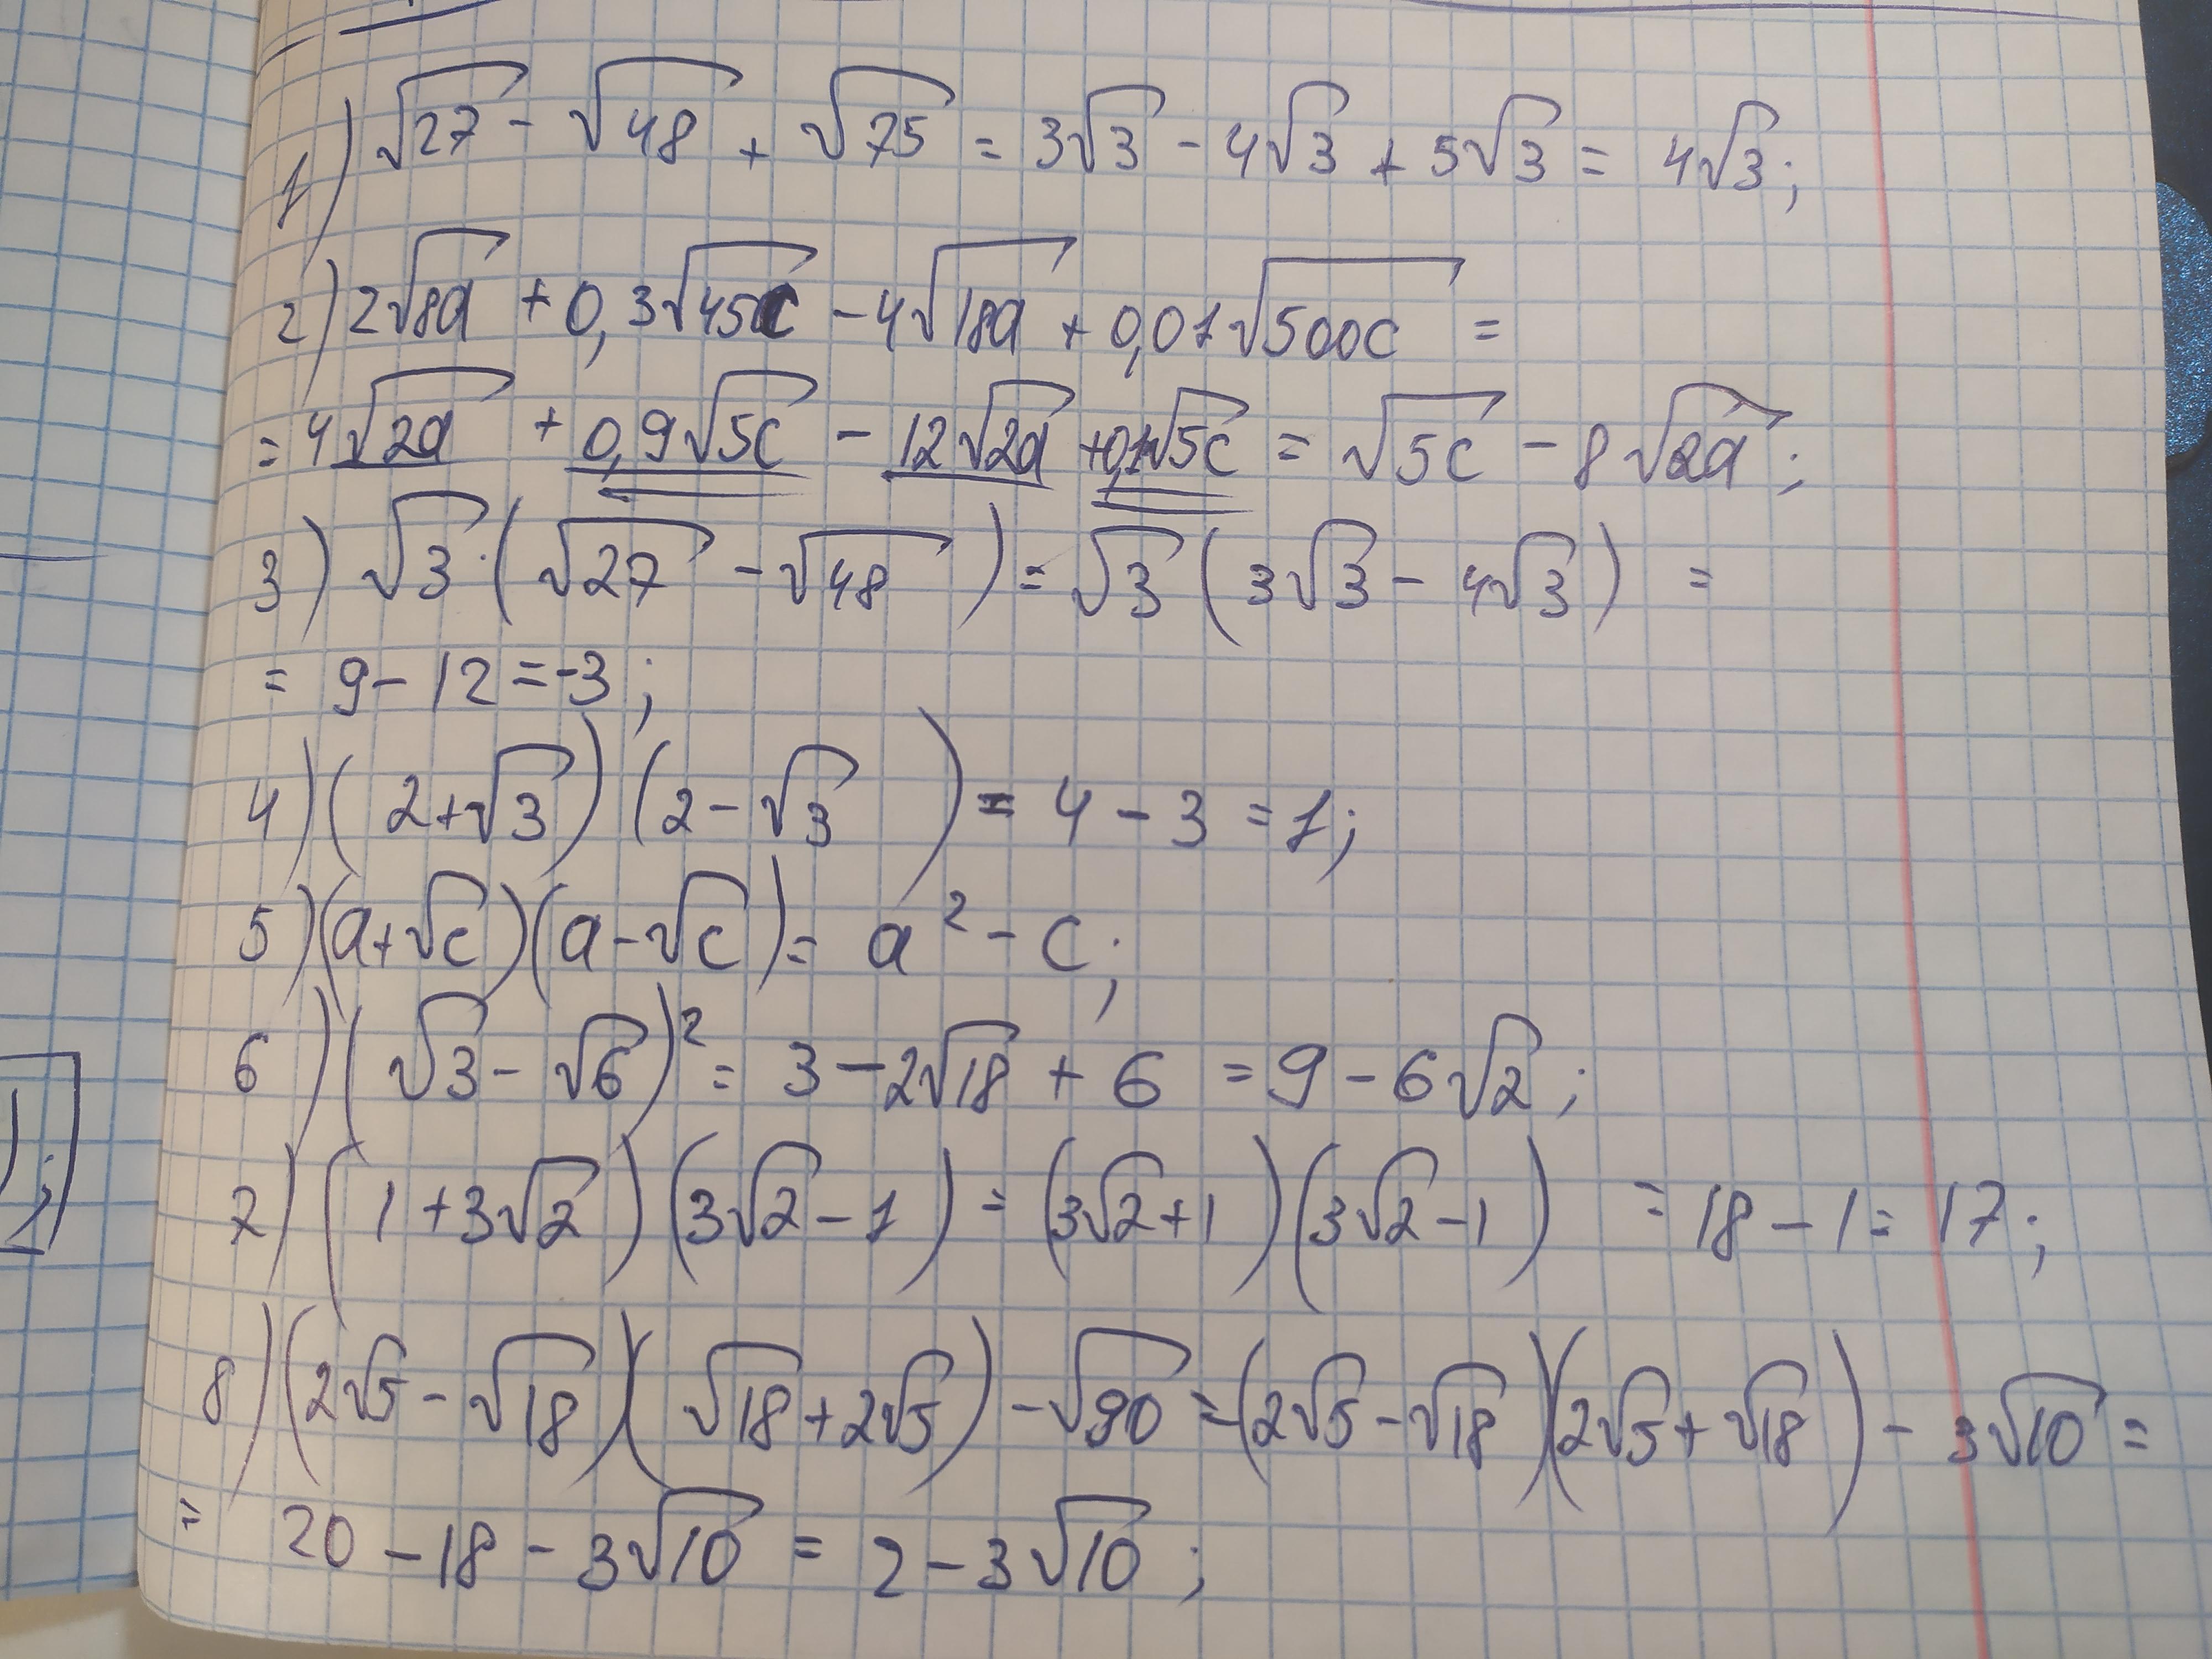 1) √27 - √48 + √75 = 3√3 - 4√3 + 5√3 = 4√3;
2) 2√8a + 0,3√45c - 4√18a + 0,01√500c =
= 4√2a + 0,9√5c - 12√2a + 0,1√5c = √5c - 8√2a;
3) √3·(√27 - √48) = √3(3√3 - 4√3) =
= 9 - 12 = -3;
4) (2+√3)(2-√3) = 4 - 3 = 1;
5) (a+√c)(a-√c) = a² - c;
6) (√3 - √6)² = 3 - 2√18 + 6 = 9 - 6√2;
7) (1+3√2)(3√2-1) = (3√2+1)(3√2-1) = 18 - 1 = 17;
8) (2√5 - √18)(√18+2√5) - √90 = (2√5-√18)(2√5+√18) - 3√10 =
= 20 - 18 - 3√10 = 2 - 3√10;